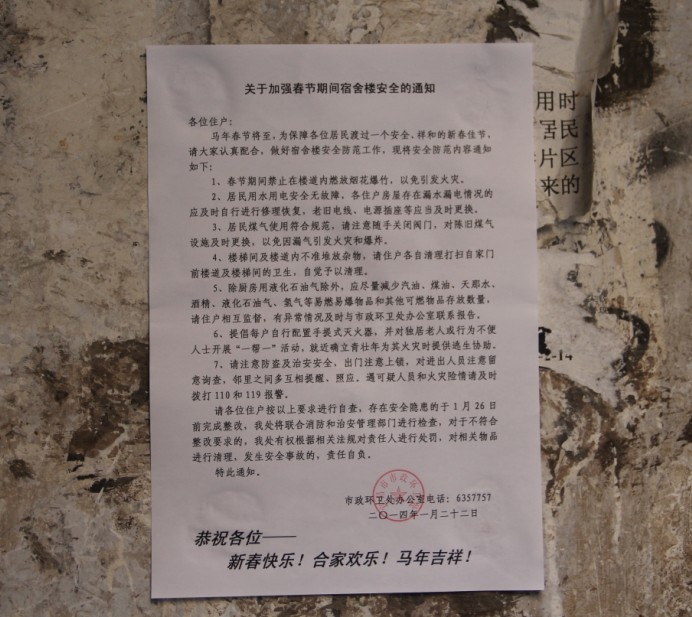 关于加强春节期间宿舍楼安全的通知
各位住户：
马年春节将至，为保障各位居民渡过一个安全、祥和的新春佳节，
请大家认真配合，做好宿舍楼安全防范工作，现将安全防范内容通知
如下：
1、春节期间禁止在楼道内燃放烟花爆竹，以免引发火灾。
2、居民用水用电安全无故障，各住户房屋存在漏水漏电情况的
应及时自行进行修理恢复，老旧电线、电源插座等应当及时更换。
3、居民煤气使用符合规范，请注意随手关闭阀门，对陈旧煤气
设施及时更换，以免因漏气引发火灾和爆炸。
4、楼梯间及楼道内不准堆放杂物，请住户各自清理打扫自家门
前楼道及楼梯间的卫生，自觉予以清理。
5、除厨房用液化石油气除外，应尽量减少汽油、煤油、天那水、
酒精、液化石油气、氢气等易燃易爆物品和其他可燃物品存放数量，
请住户相互监督，有异常情况及时与市政环卫处办公室联系报告。
6、提倡每户自行配置手提式灭火器，并对独居老人或行为不便
人士开展“一帮一”活动，就近确立青壮年为其火灾时提供逃生协助。
7、请注意防盗及治安安全，出门注意上锁，对进出人员注意留
意询查，邻里之间多互相提醒、照应。遇可疑人员和火灾险情请及时
拨打 110 和 119 报警。
请各位住户按以上要求进行自查，存在安全隐患的于 1 月 26 日
前完成整改，我处将联合消防和治安管理部门进行检查，对于不符合
整改要求的，我处有权根据相关法规对责任人进行处罚，对相关物品
进行清理，发生安全事故的，责任自负。
特此通知。
市政环卫处办公室电话：6357757
二〇一四年一月二十二日
恭祝各位——
新春快乐！合家欢乐！马年吉祥！
用时
居民
片区
来的